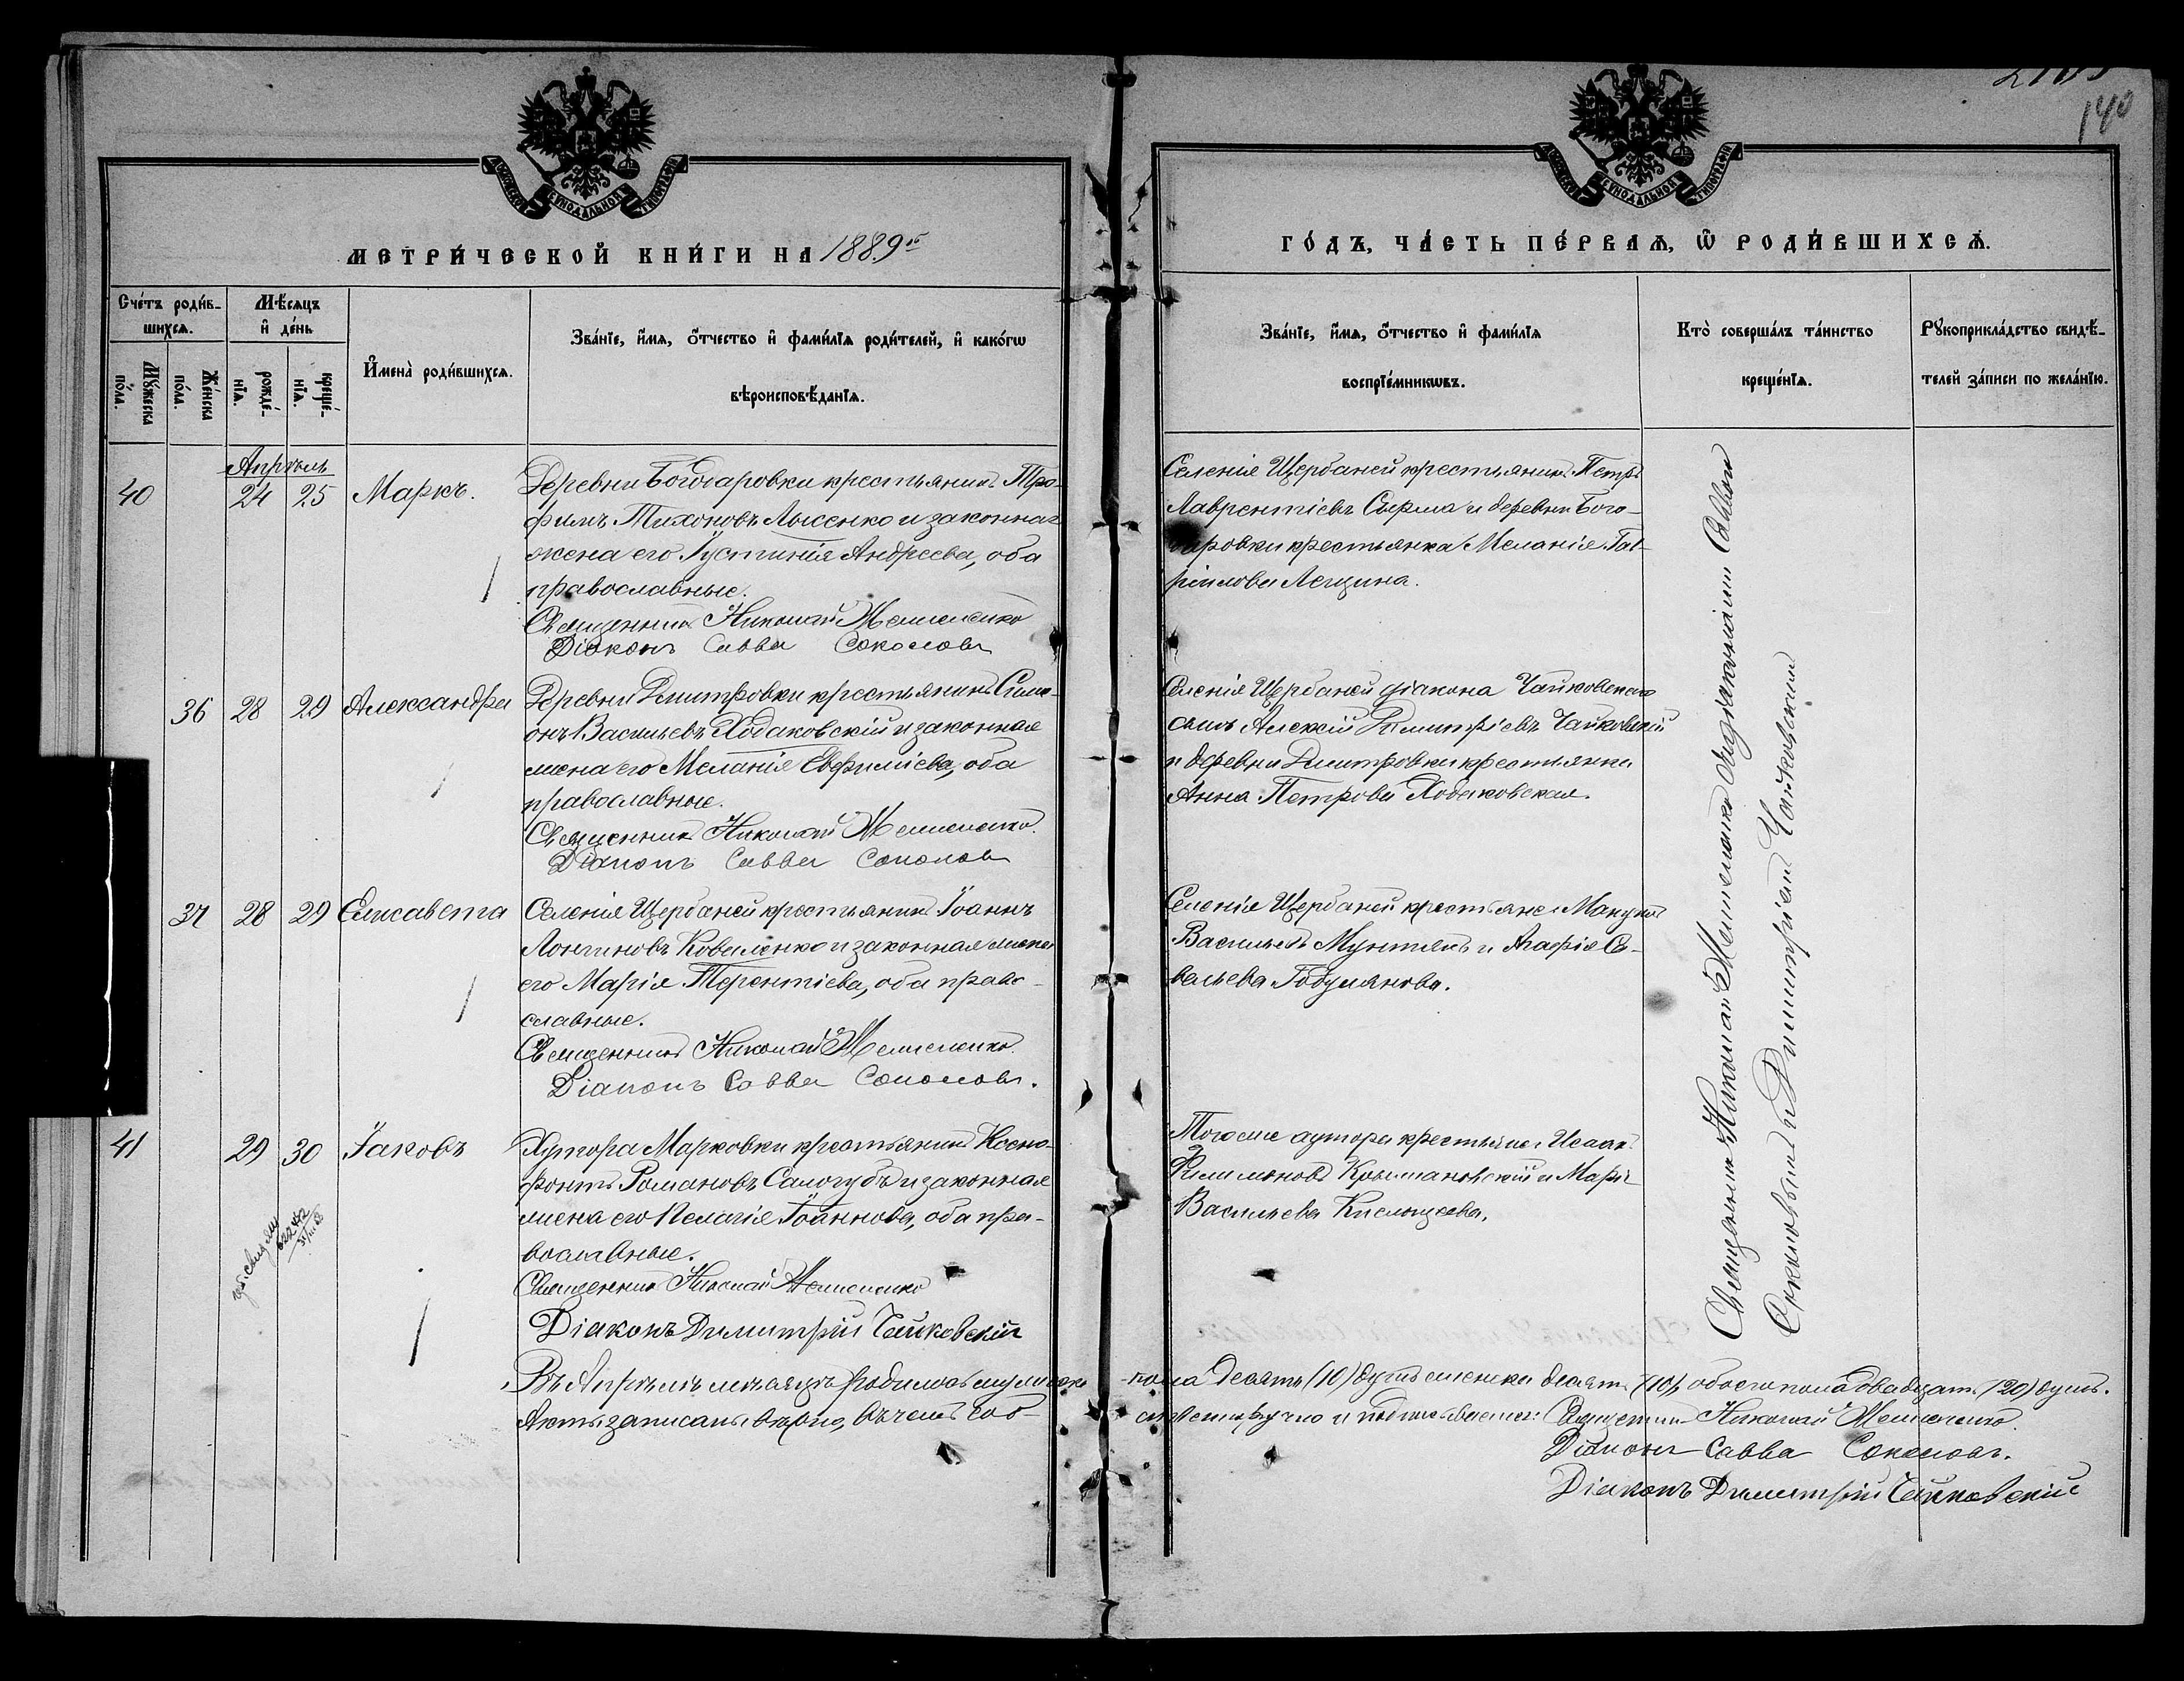 140
МЕТРИ́ЧЕСКОЙ КНИ́ГИ НА 1889й
ГО́ДЪ, ЧА́СТЬ ПЕ́РВАѦ, Ѿ РОДИ́ВШИХСѦ.
Сче́тъ роди́в-
шихсѧ.
Мѣ́сѧцъ
и҆ де́нь
Мꙋ́жеска
по́ла.
Же́нска
по́ла.
рожде́-
нїѧ.
креще́-
нїѧ.
И҆мена̀ роди́вшихсѧ.
Зва́нїе, и҆́мѧ, ѻ҆́тчество и҆ фами́лїѧ роди́телей, и҆ како́гѡ
вѣроисповѣ́данїѧ.
Зва́нїе, и҆́мѧ, ѻ҆́тчество и҆ фами́лїѧ
воспрїе́мникѡвъ.
Кто̀ соверша́лъ та́инство
креще́нїѧ.
Рꙋкоприкла́дство свидѣ́-
телей за́писи по жела́нїю.
Апрѣль
40 24 25 Маркъ.
Деревни Богодаровки крестьянинъ Тро-
фимъ Тихоновъ Лысенко и законная
жена его Іустинія Андреева, оба
православные.
Священникъ Николай
Діаконъ Савва Соколовъ
Селенія Щербаней крестьянинъ Петръ
Лаврентіевъ Сырма и деревни Бого-
даровки крестьянка Меланія Гав-
ріилова Лещина.
36 28 29 Александра
Деревни Дмитровки крестьянинъ Симе-
онъ Васильевъ Ходаковскій и законная
жена его Меланія Евфиміева, оба
православные.
Священникъ Николай
Діаконъ Савва Соколовъ
Селенія Щербаней діакона Чайковскаго
сынъ Алексій Димитріевъ Чайковскій
и деревни Дмитровки крестьянка
Анна Петрова Ходаковская.
37 28 29 Елисавета
Селенія Щербаней крестьянинъ Іоаннъ
Лонгиновъ Коваленко и законная жена
его Марія Терентіева, оба право-
славные.
Священникъ Николай
Діаконъ Савва Соколовъ.
Селенія Щербаней крестьяне:
Васильевъ Мунтянъ и Агафія Са-
вельева
41 29 30 Іаковъ
Хутора Марковки крестьянинъ Ксено-
фонтъ Романовъ Салогубъ и законная
жена его Пелагія Іоаннова, оба пра-
вославные.
Священникъ Николай
Діаконъ Димитрій Чайковскій
Тогоже хутора крестьяне: Исаакъ
Филимоновъ и Марія
Васильева
Священникъ Николай съ діаконами Саввою
Соколовымъ и Димитріемъ Чайковскимъ
Въ Апрѣлѣ мѣсяцѣ родилось мужеска пола десять (10) душъ женска десять (10), обоего пола двадцать (20) душъ.
Акты записаны вѣрно, въ чемъ соб- ственноручно и подписываемся: Священникъ Николай
Діаконъ Савва Соколовъ.
Діаконъ Димитрій Чайковскій